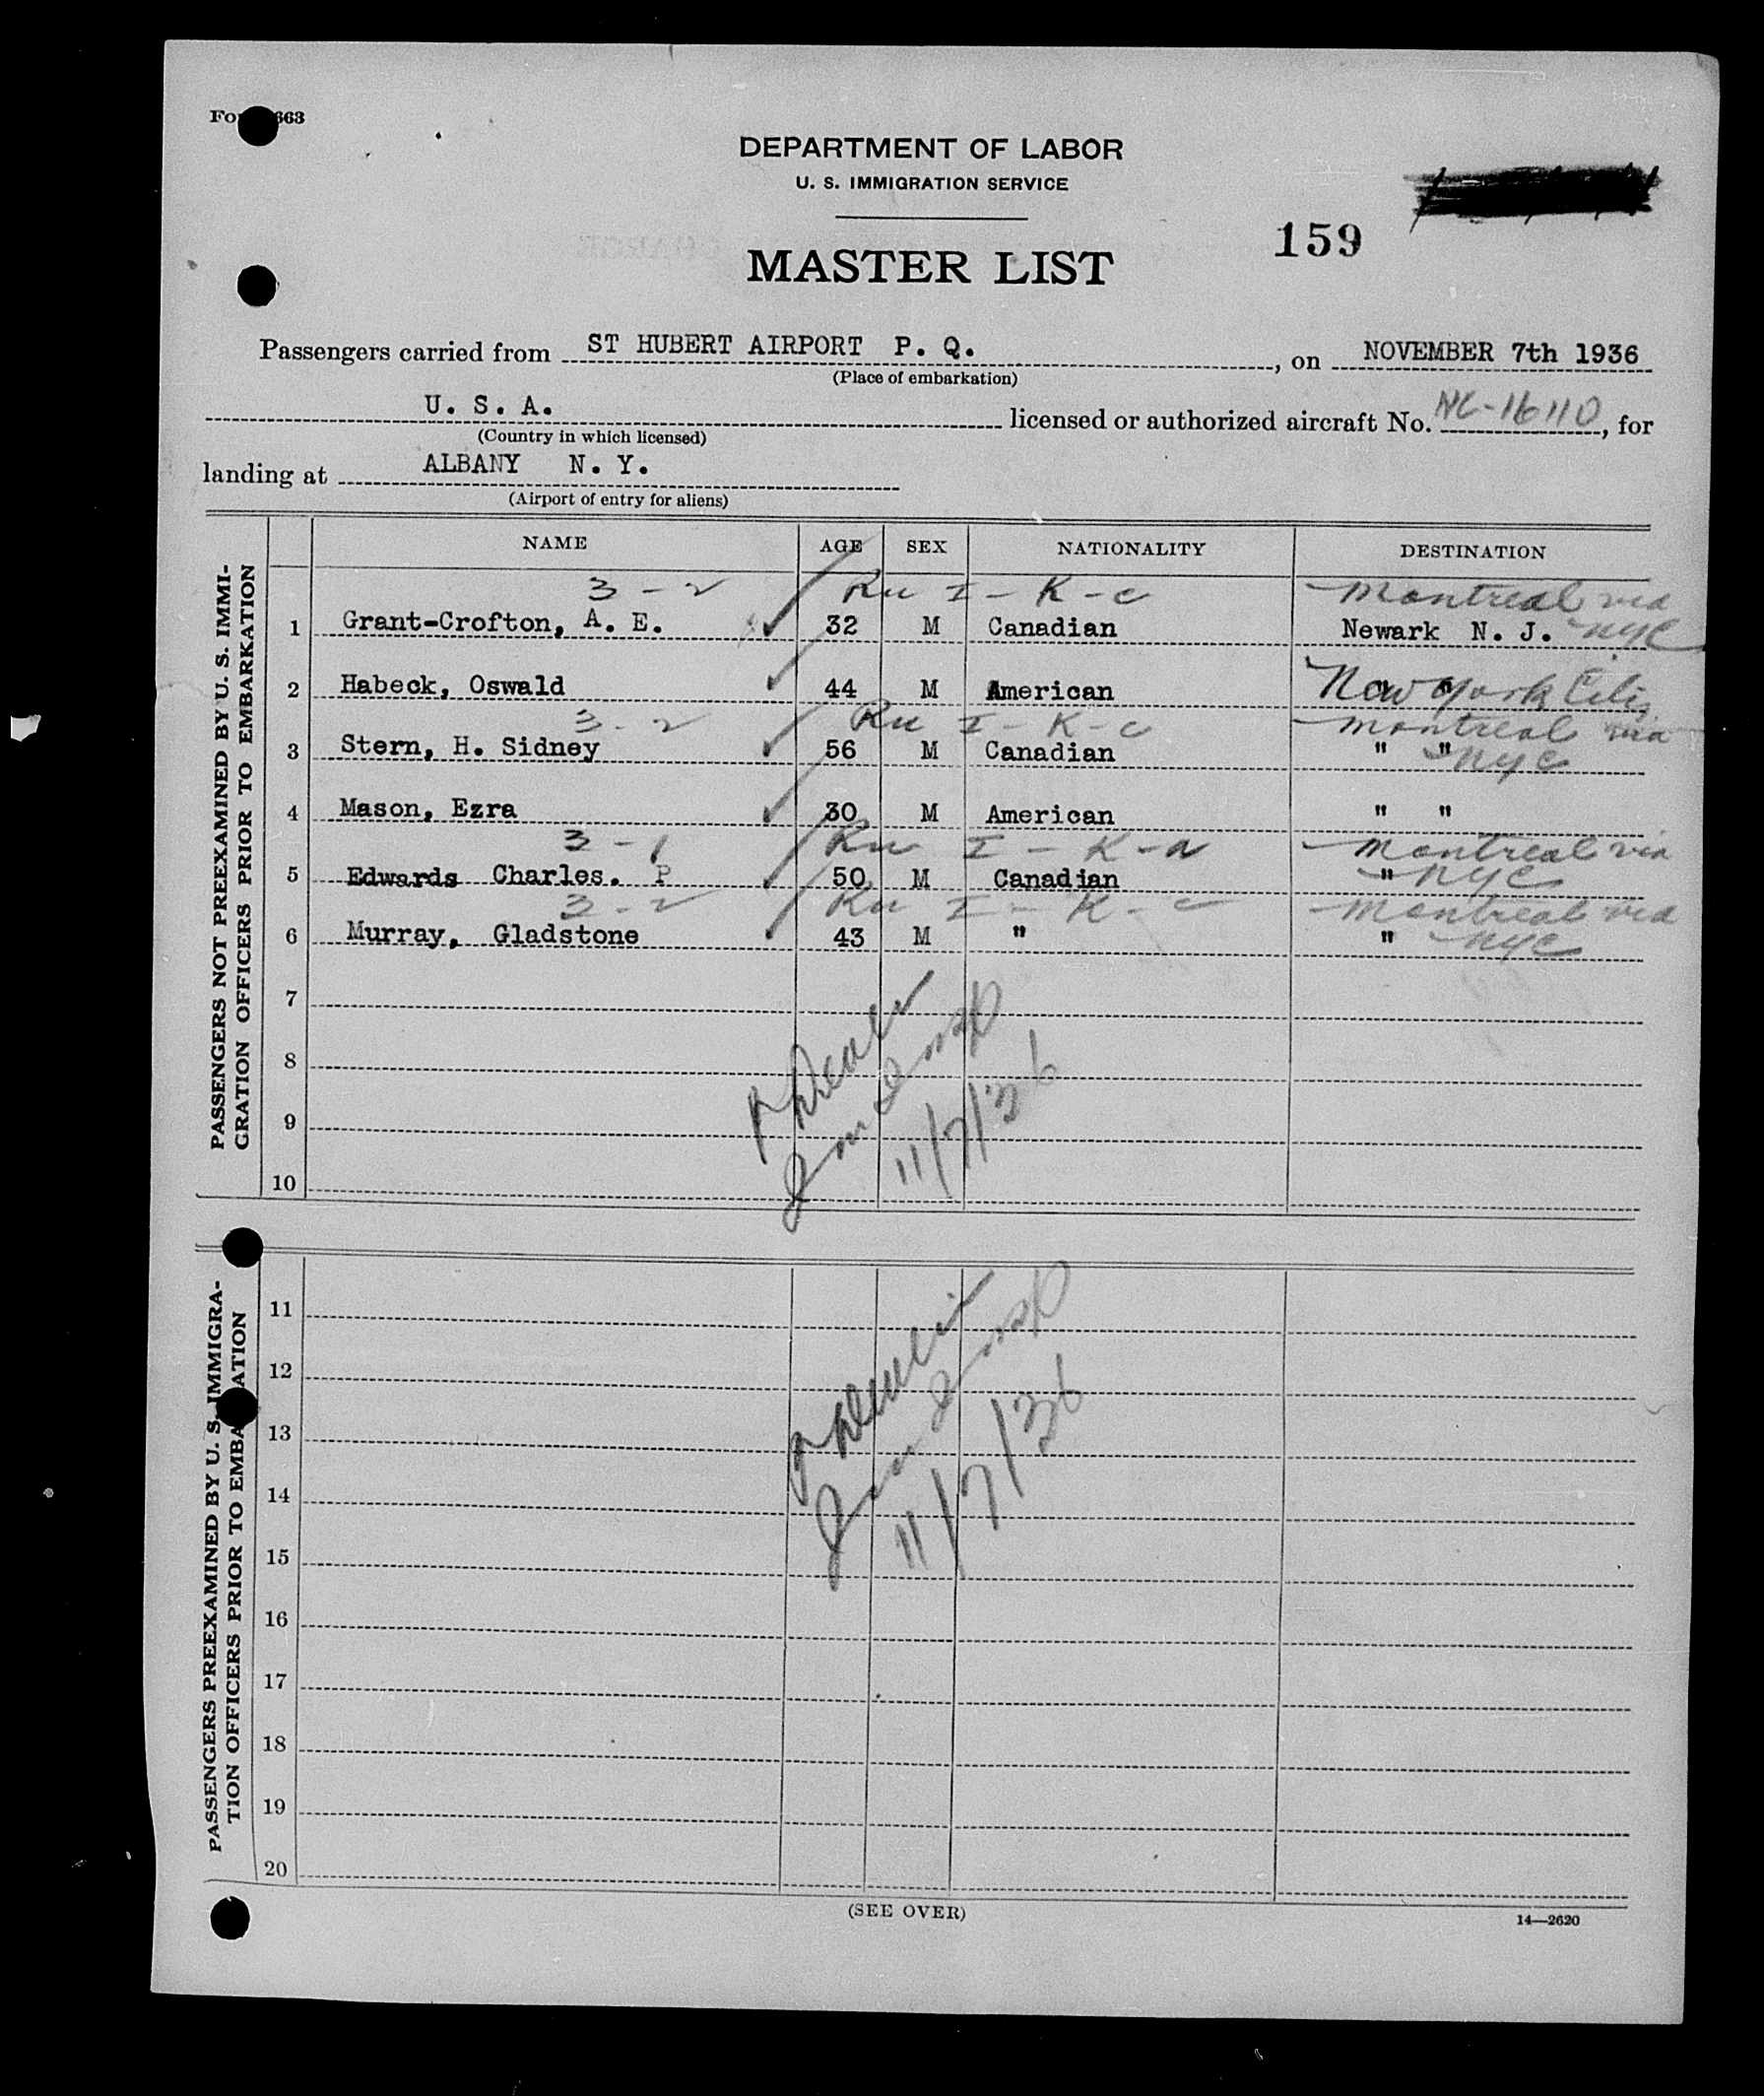 663
DEPARTMENT OF LABOR
U. S. IMMIGRATION SERVICE
159
MASTER LIST
Passengers carried from ST HUBERT AIRPORT P. Q., on NOVEMBER 7th 1936
(Place of embarkation)
U. S. A. licensed or authorized aircraft No. NC-16110, for
(Country in which licensed)
landing at ALBANY N. Y.
(Airport of entry for aliens)
PASSENGERS NOT PREEXAMINED BY U. S. IMMI-
GRATION OFFICERS PRIOR TO EMBARKATION
NAME AGE SEX NATIONALITY DESTINATION
3 - 2 I - K - C Montreal via
1 Grant-Crofton, A. E. 32 M Canadian Newark N. J. NYC
2 Habeck, Oswald 44 M American New York City
3 - 2 I - K - C Montreal via
3 Stern, H. Sidney 56 M Canadian " " NYC
4 Mason, Ezra 30 M American " "
3 - 1 I - K - a Montreal via
5 Edwards Charles. P 50 M Canadian " NYC
3 - 2 I - K - C Montreal via
6 Murray, Gladstone 43 M " " NYC
7
8
9
10
11/7/36
PASSENGERS PREEXAMINED BY U. S. IMMIGRA-
TION OFFICERS PRIOR TO EMBA ATION
11
12
13
14
15
16
17
18
19
20
11/7/36
(SEE OVER)
14—2620